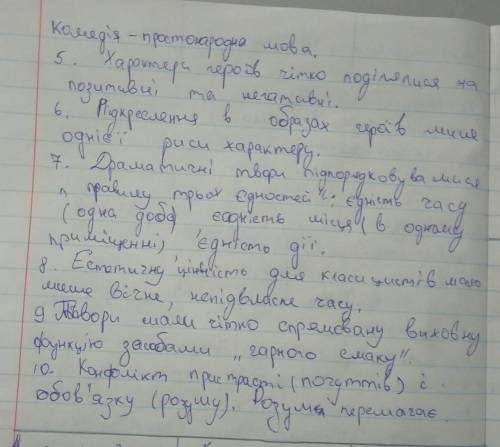 Комедія - простонародна мова.
5. Характери героїв чітко поділялися на
позитивні та негативні.
6. Підкреслення в образах героїв лише
однієї риси характеру.
7. Драматичні твори підпорядковувалися
„ правилу трьох єдностей": єдність часу
(одна доба) єдність місця (в одному
приміщенні) єдність дії.
8. Естетичну цінність для класицистів мало
лише вічне, непідвласне часу.
9 Твори мали чітко спрямовану виховну
функцію засобами „гарного смаку".
10. Конфлікт пристрасті (почуттів) і
обов'язку (розуму). Розум перемагає.